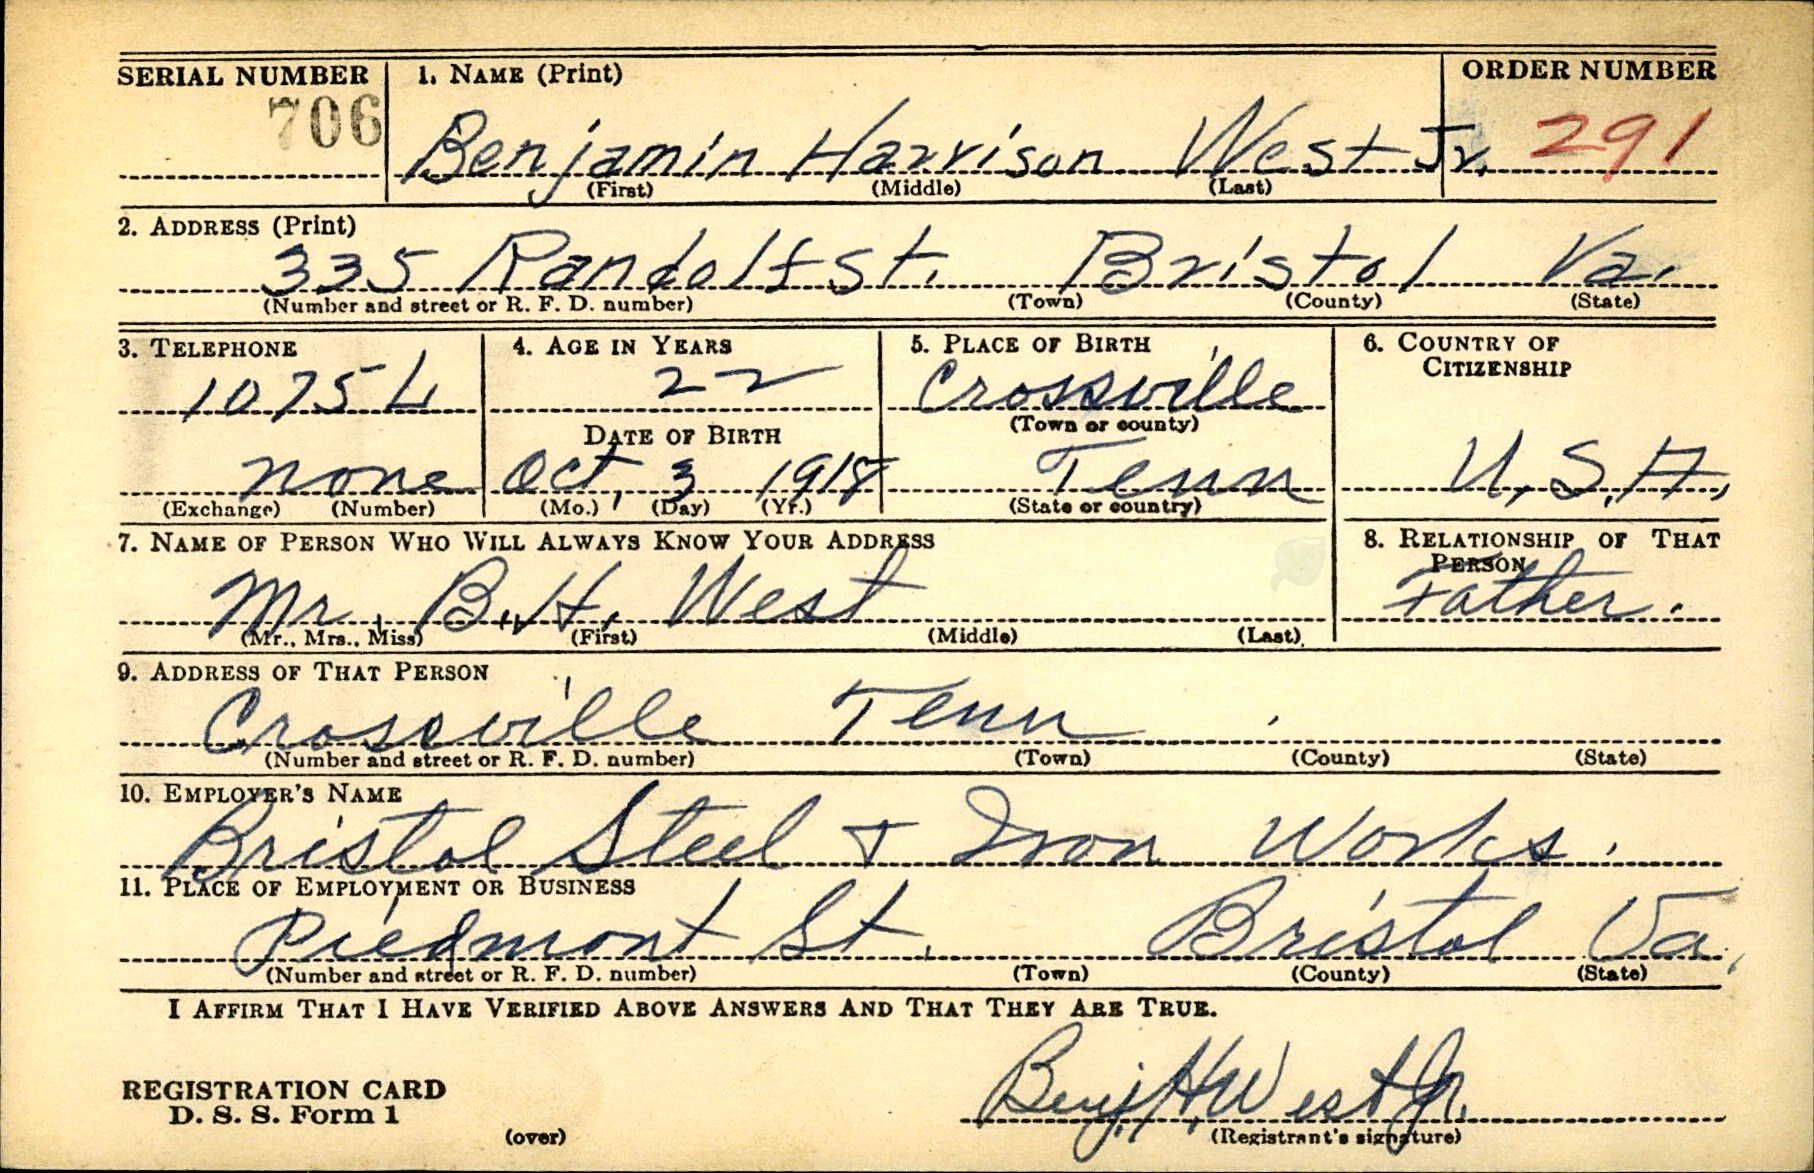 SERIAL NUMBER 1. NAME (Print) ORDER NUMBER
706 Benjamin Harrison West Jr. 291
(First) (Middle) (Last)
2. ADDRESS (Print)
335 Randolf St. Bristol Va.
(Number and street or R. F. D. number) (Town) (County) (State)
3. TELEPHONE 4. AGE IN YEARS 5. PLACE OF BIRTH 6. COUNTRY OF
CITIZENSHIP
1075 L 22 Crossville
(Town or county)
DATE OF BIRTH
none Oct, 3 1918 Tenn U.S.A.
(Exchange) (Number) (Mo.) (Day) (Yr.) (State or country)
7. NAME OF PERSON WHO WILL ALWAYS KNOW YOUR ADDRESS 8. RELATIONSHIP OF THAT
PERSON
Mr. B. H. West Father.
(Mr., Mrs., Miss) (First) (Middle) (Last)
9. ADDRESS OF THAT PERSON
Crossville Tenn
(Number and street or R. F. D. number) (Town) (County) (State)
10. EMPLOYER'S NAME
Bristol Steel + Iron Works.
11. PLACE OF EMPLOYMENT OR BUSINESS
Piedmont St. Bristol Va.
(Number and street or R. F. D. number) (Town) (County) (State)
I AFFIRM THAT I HAVE VERIFIED ABOVE ANSWERS AND THAT THEY ARE TRUE.
REGISTRATION CARD
D. S. S. Form 1 Benj. H. West Jr.
(over) (Registrant's signature)